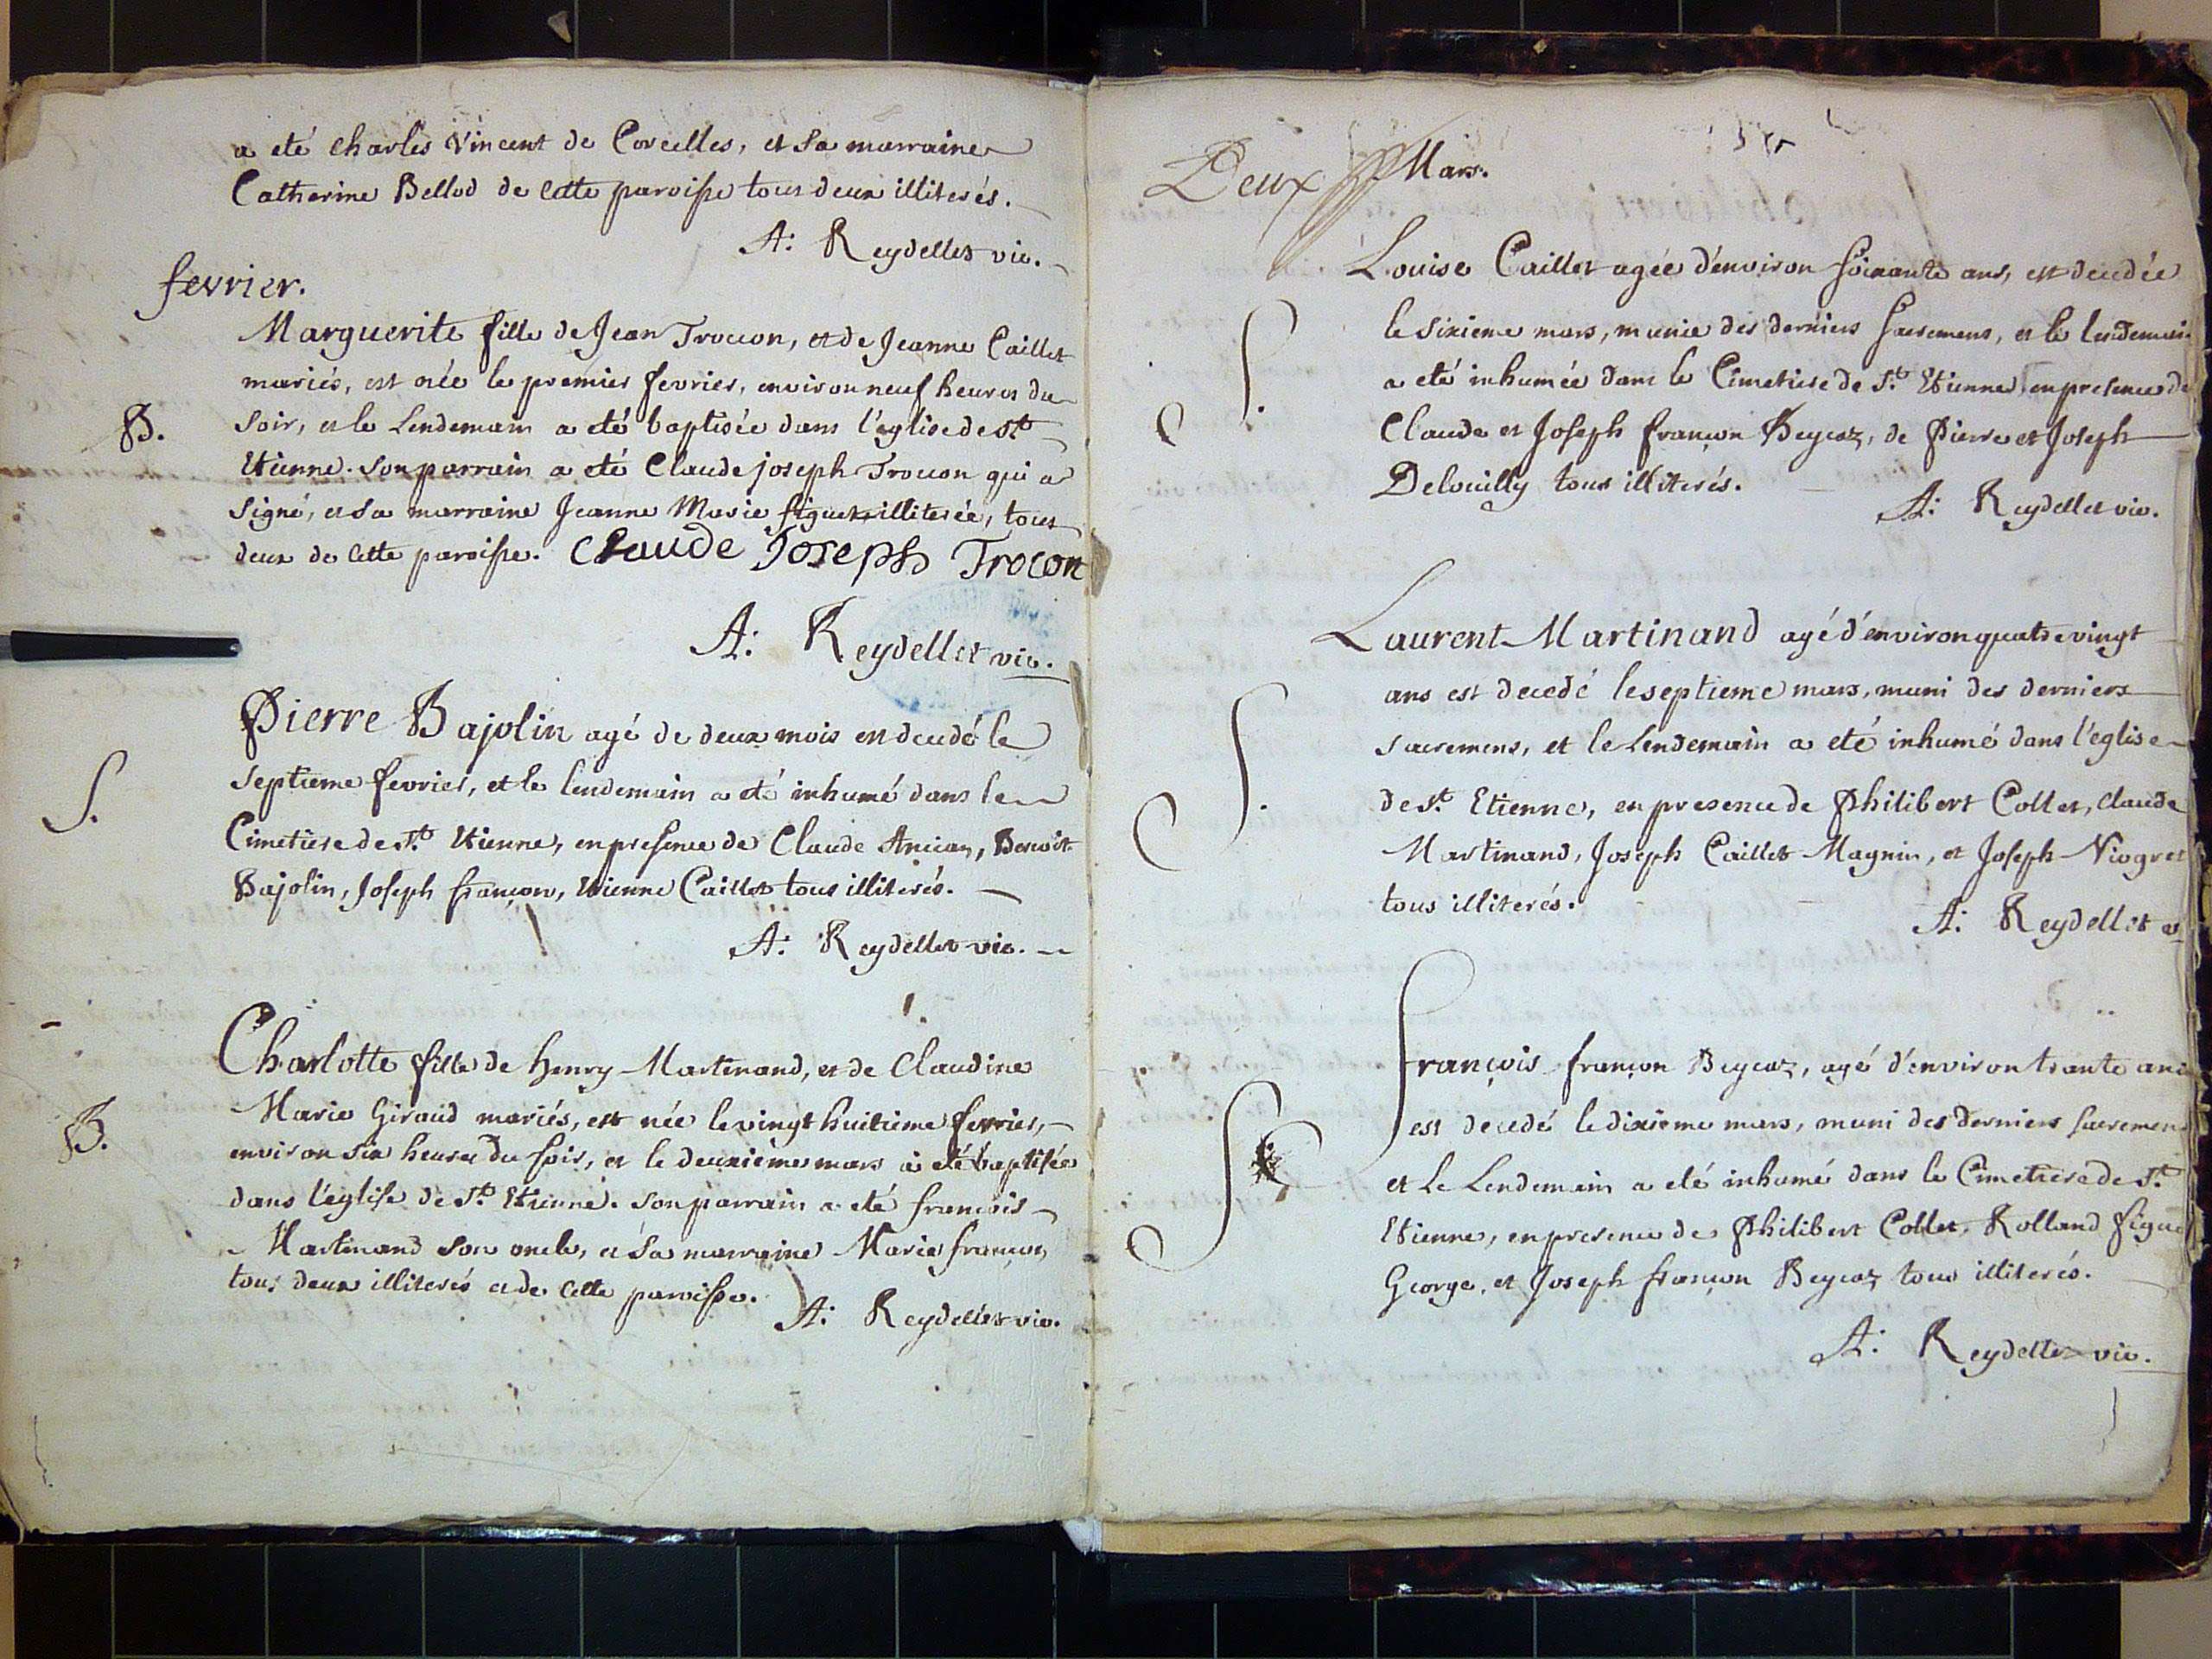 a eté charles Vincent de Corcelles, et sa marraine
Catherine Bellod de cette paroisse tous deux illiterés.
A: Reydellet vic.
fevrier.
Marguerite fille de Jean Trocon, et de Jeanne Caillet
mariés, est née le premier fevrier, environ neuf heures du
B. soir, et le Lendemain a eté baptisée dans l'église de St
Etienne. son parrain a eté Claude joseph Trocon qui a
signé, et sa marraine Jeanne Marie figuet illiterée, tous
deux de cette paroisse. Claude Joseph Trocon
A: Reydellet vic.
Pierre Bajolin agé de deux mois est decedé le
septieme fevrier, et le lendemain a eté inhumé dans le
S. Cimetiere de St. Etienne, en presence de Claude Ancian, Benoit
Bajolin, Joseph françon, Etienne Caillet tous illiterés.
A: Reydellet vic.
Charlotte fille de henry Martinand, et de Claudine
B. Marie Giraud mariés, est née le vingt huitieme fevrier,
environ six heures du soir, et le deuxieme mars a eté baptisée
dans l'église de St. Etienne. son parrain a eté françois
Martinand son oncle, et sa marraine Marie françon,
tous deux illiterés et de cette paroisse.
A: Reydellet vic.
Deux
Mars.
Louise Caillet agée d'environ soixante ans, est decedée
le sixieme mars, munie des derniers sacremens, et le lendemain
S. a eté inhumée dans le Cimetiere de St. Etienne, en presence de
Claude et Joseph françon Beycoz, de Pierre et Joseph
Delouilly tous illiterés.
A: Reydellet vic.
Laurent Martinand agé d'environ quatre vingt
ans est decedé le septieme mars, muni des derniers
S. sacremens, et le Lendemain a eté inhumé dans l'église
de St. Etienne, en presence de Philibert Collet, claude
Martinand, Joseph Caillet Magnin, et Joseph Niogret
tous illiterés.
A: Reydellet v
françois françon Beycoz, agé d'environ trante ans
est decedé le dixieme mars, muni des derniers sacremens
S. et Le Lendemain a eté inhumé dans le Cimetiere de St.
Etienne, en presence de Philibert Collet, Rolland figuet
George, et Joseph françon Beycoz tous illiterés.
A: Reydellet vic.